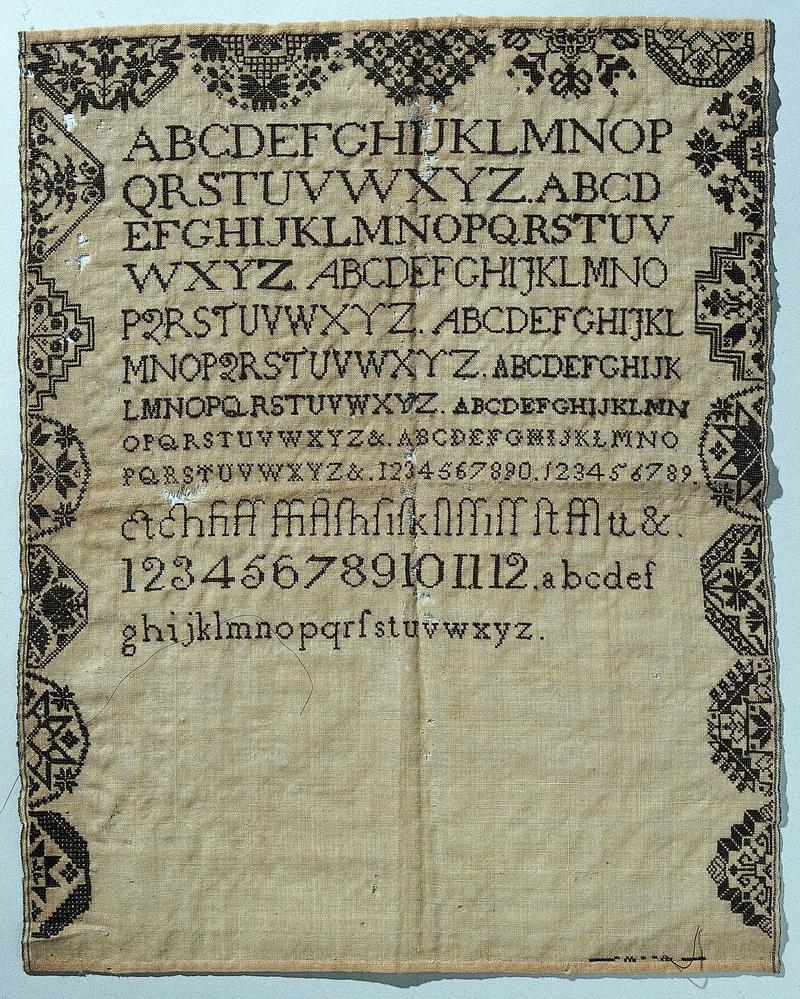 ABCDEFGHIJKLMNOP
QRSTUVWXYZ.ABCD
EFGHIJKLMNOPQRSTUV
WXYZ ABCDEFGHIJKLMNO
PQRSTUVWXYZ. ABCDEFGHIJKL
MNOPQRSTUVWXYZ. ABCDEFGHIJK
LMNOPQRSTUVWXYZ. ABCDEFGHIJKLMN
OPQRSTUVWXYZ&. ABCDEFGHIJKLMNO
PQRSTUVWXYZ&. 1234567890. 123456789.
&.
123456789101112.abcdef
ghijklmnopqrſstuvwxyz.